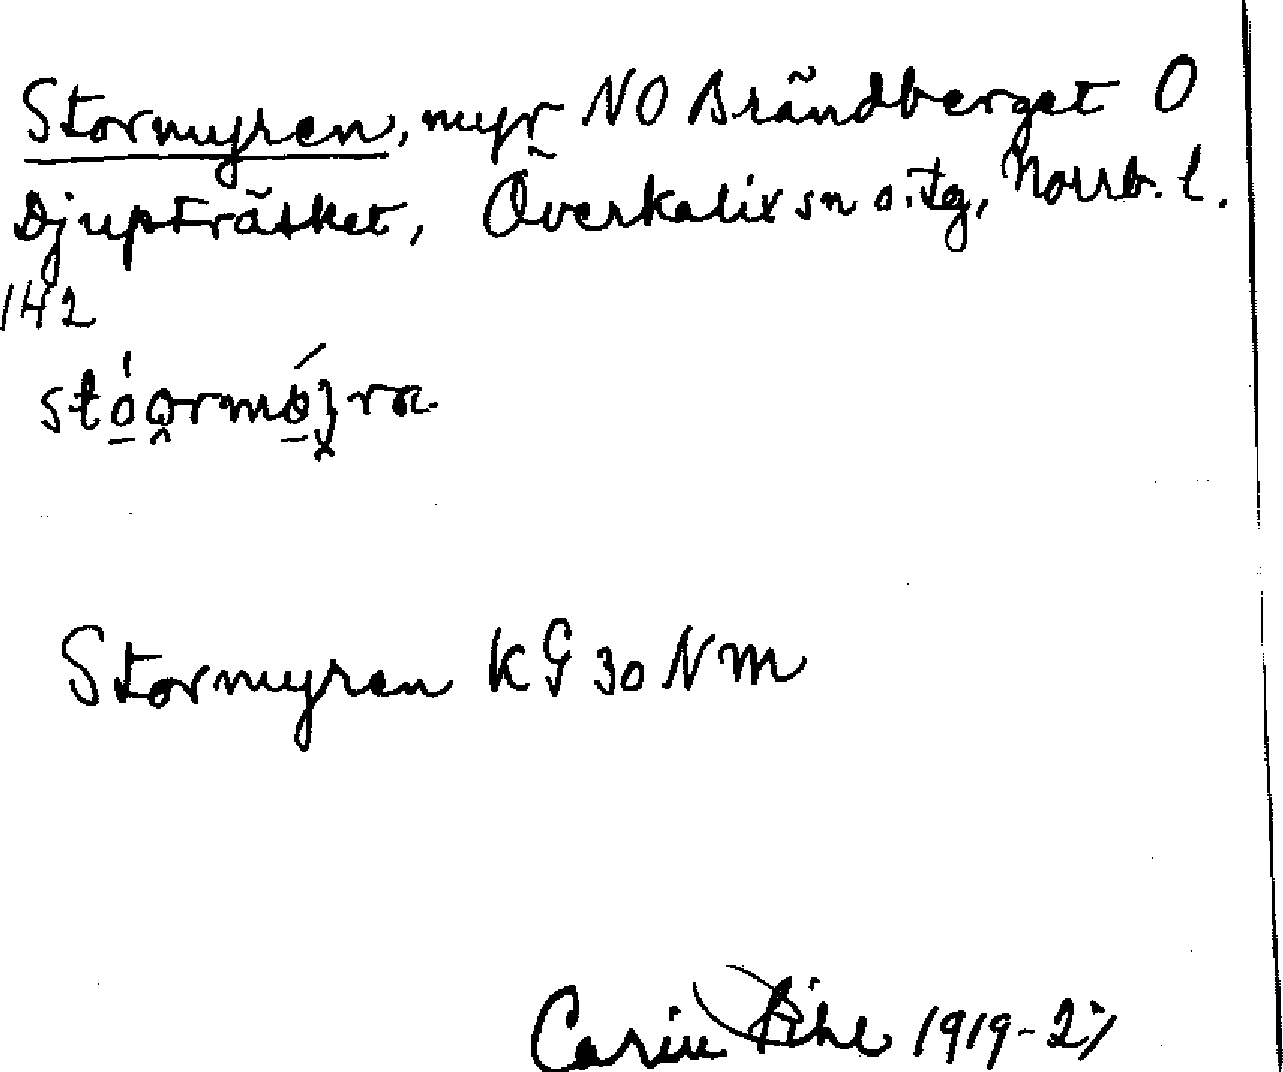 Stormyren, myr NO Brändberget O
Djupträsket, Överkalix sn o. tg, Norrb. l.
142
Stormyren KG 30 NM
Carin Pihl 1919-27